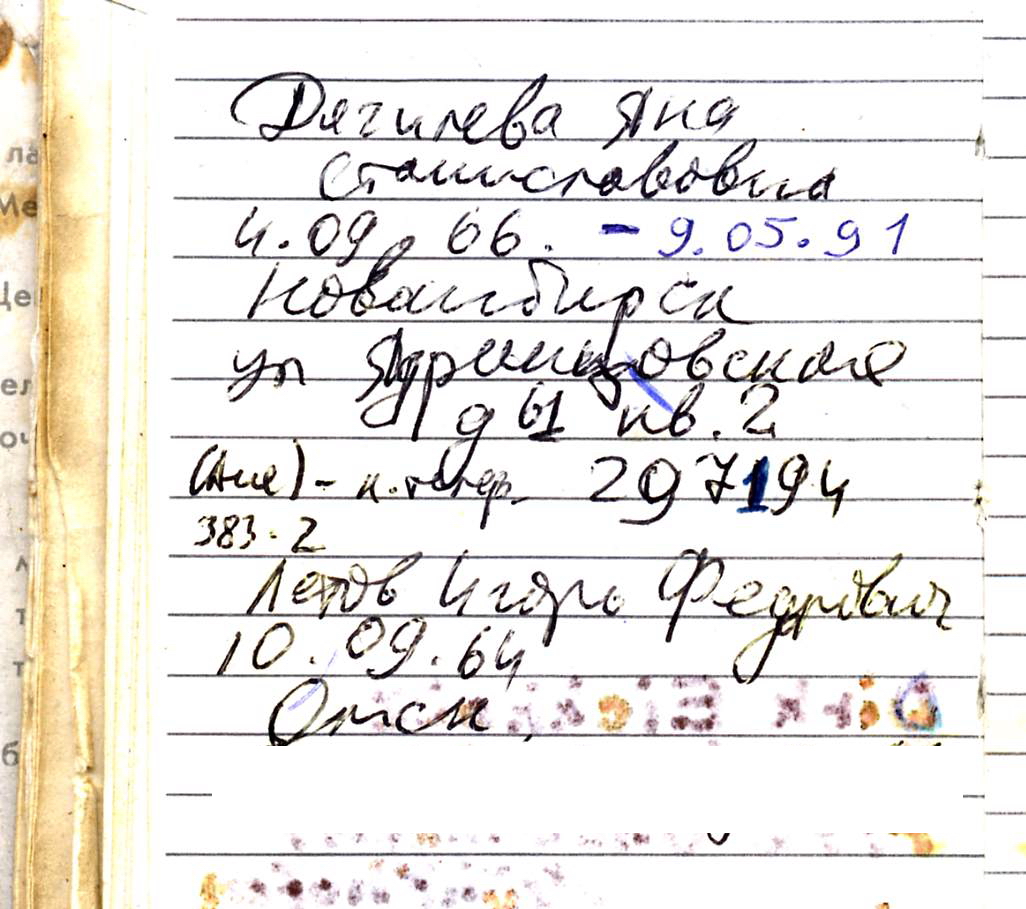 Дягилева Яна
Станиславовна
4.09.66. - 9.05.91
Новосибирск
ул Ядринцовская
д 61 кв. 2
(Аня) - к. телеф. 297194
383-2
Летов Игорь Федрович
10.09.64
Омск,